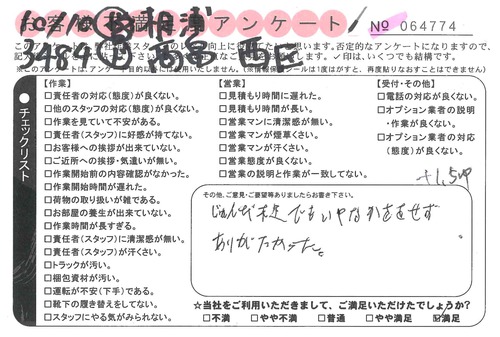 お客様不満足アンケート
№ 064774
このアンケートは
※このアンケートは、アンケート目的以外には使用いたしません。(※情報保護シールは1度はがすと、再度貼りなおすことはできません)
チェックリスト
【作業】
□責任者の対応(態度)が良くない。
□他のスタッフの対応(態度)が良くない。
□作業を見ていて不安がある。
□責任者(スタッフ)に好感が持てない。
□お客様への挨拶が出来ていない。
□ご近所への挨拶・気遣いが無い。
□作業開始前の内容確認がなかった。
□作業開始時間が遅れた。
□荷物の取り扱いが雑である。
□お部屋の養生が出来ていない。
□作業時間が長すぎる。
□責任者(スタッフ)に清潔感が無い。
□責任者(スタッフ)が汗くさい。
□トラックが汚い。
□梱包資材が汚い。
□運転が不安(下手)である。
□靴下の履き替えをしてない。
□スタッフにやる気がみられない。
【営業】
□見積もり時間に遅れた。
□見積もり時間が長い。
□営業マンに清潔感が無い。
□営業マンが煙草くさい。
□営業マンが汗くさい。
□営業態度が良くない。
□営業の説明と作業が一致してない。
【受付・その他】
□電話の対応が良くない。
□オプション業者の説明・作業が良くない。
□オプション業者の対応(態度)が良くない。
その他、ご意見・ご要望等ありましたらお書き下さい。
じゅんび不足でもいやなかおをせず
ありがたかった。
☆当社をご利用いただきまして、ご満足いただけたでしょうか？
□不満 □やや不満 □普通 □やや満足 ☑満足